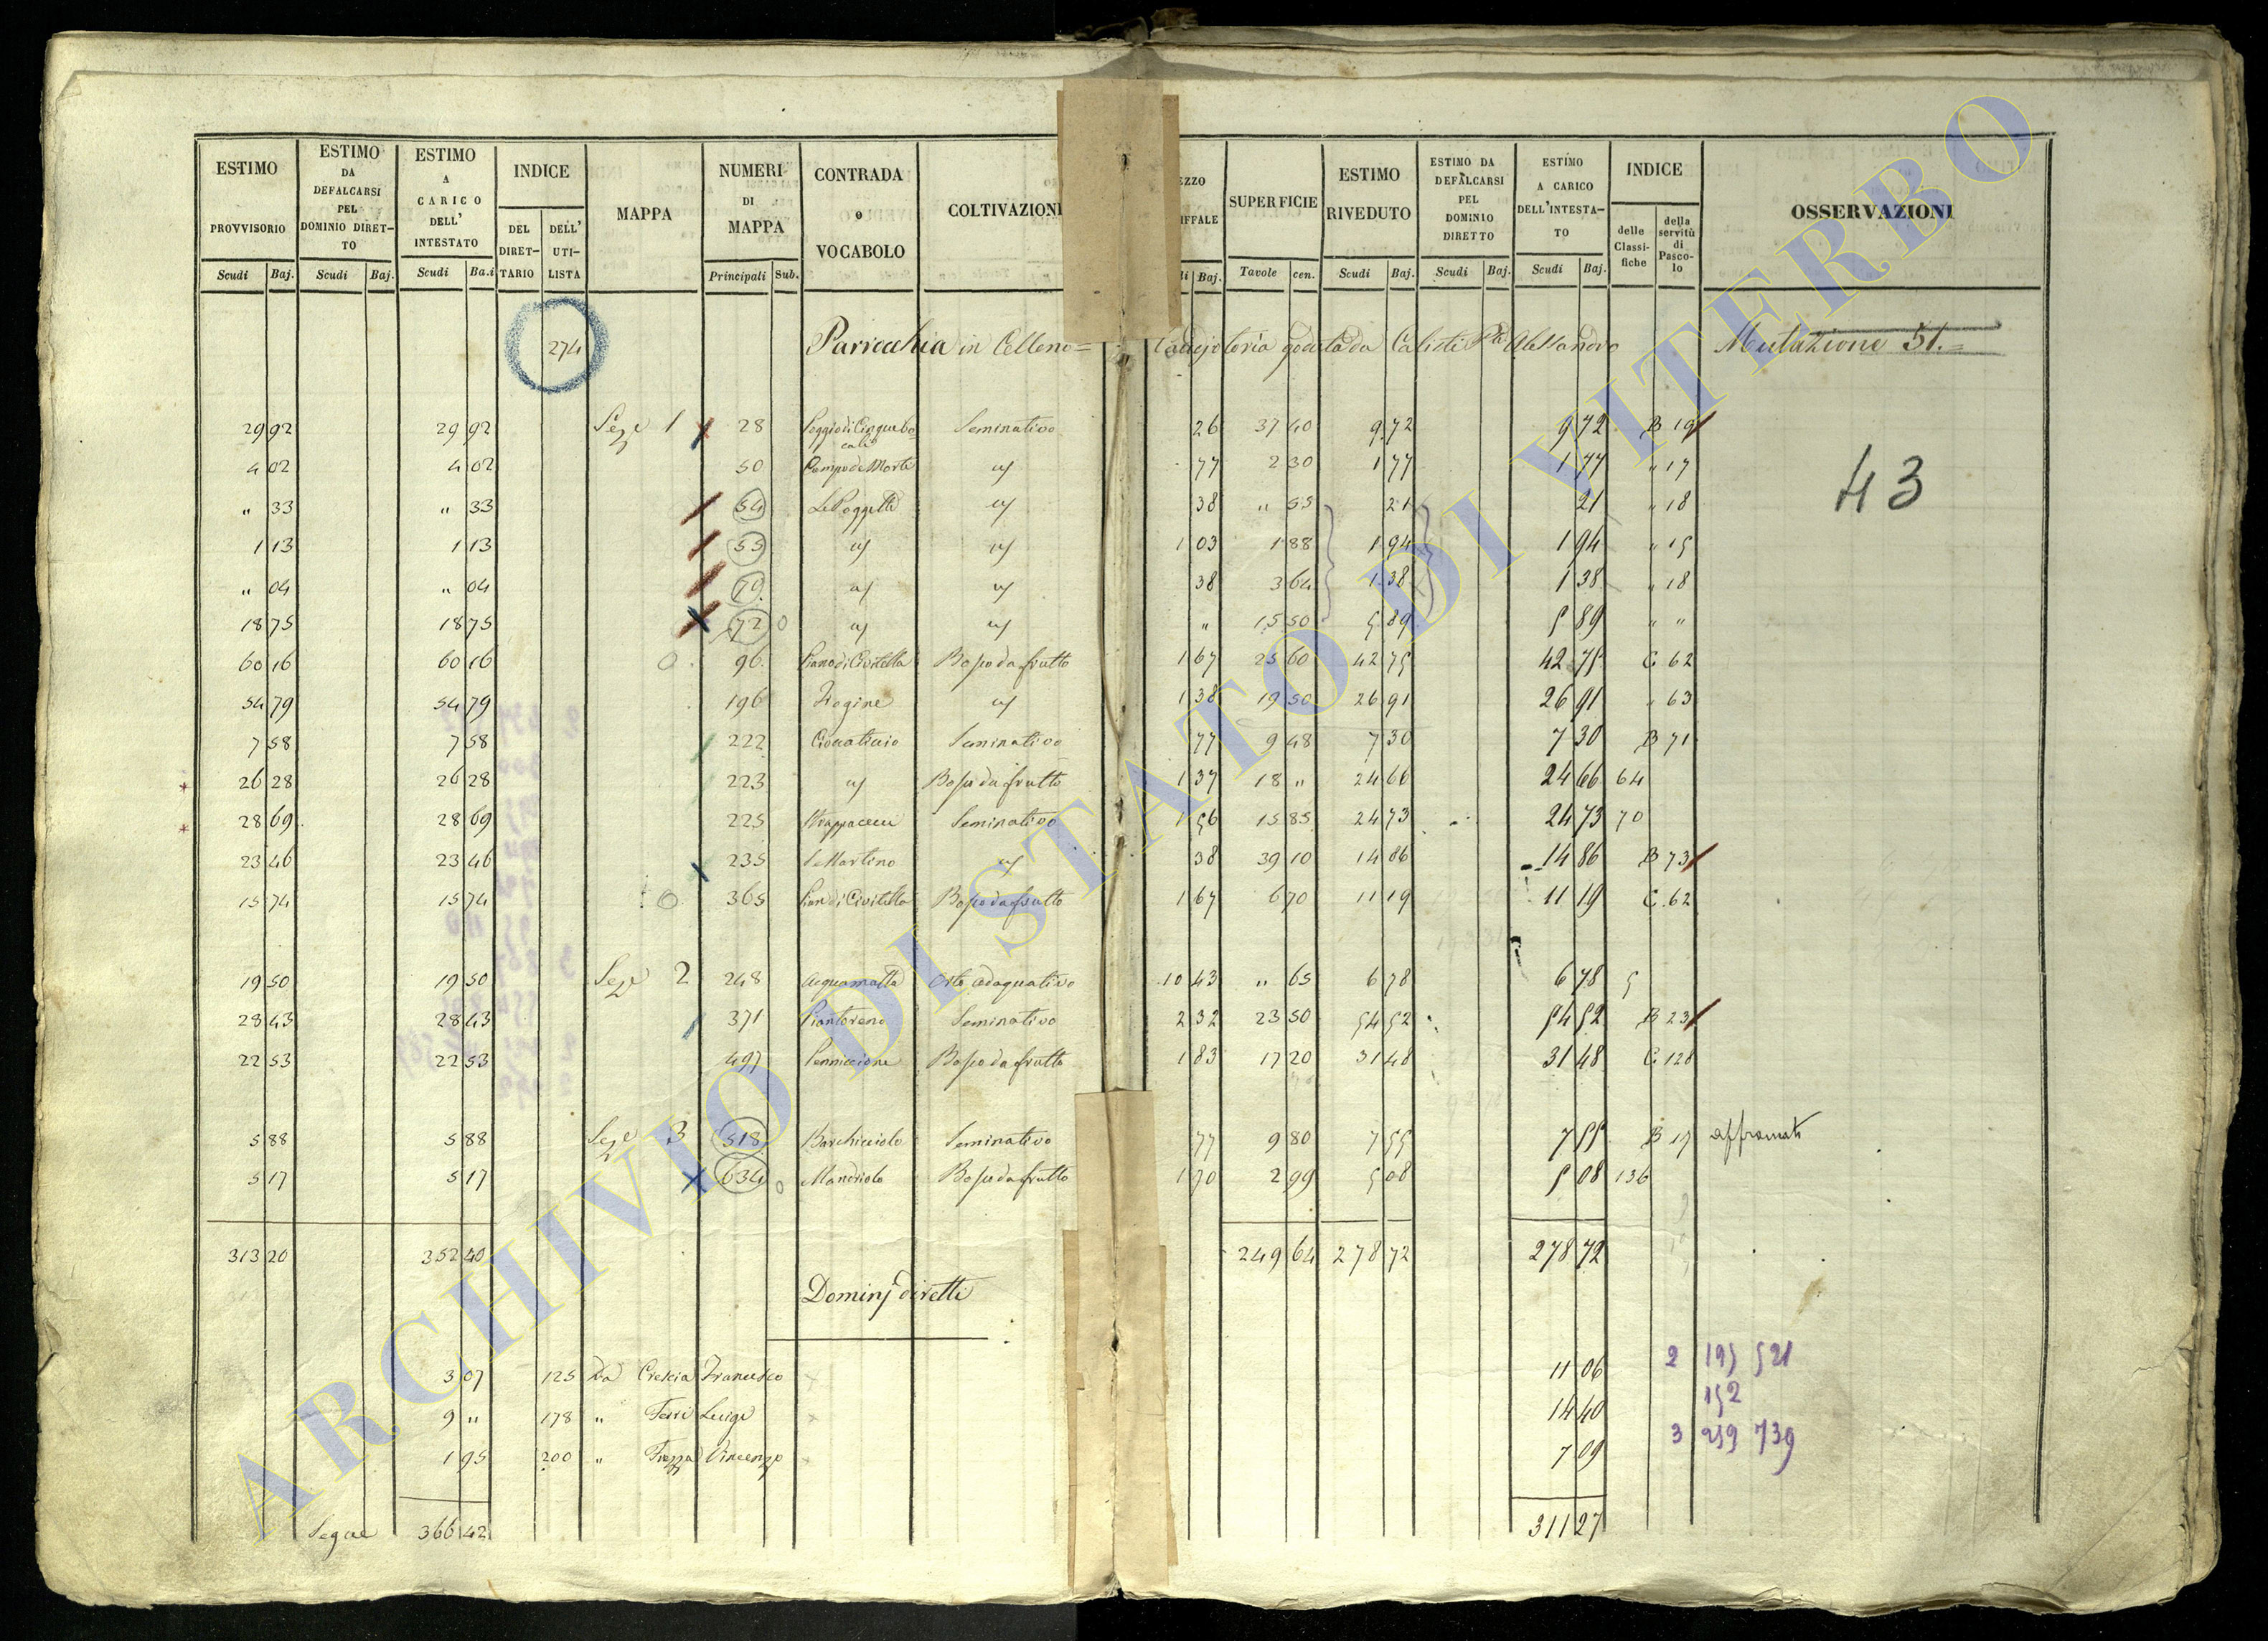 ESTIMO PROVVISORIO Scudi Baj. ESTIMO DA DEFALCARSI PEL DOMINIO DIRET-TO Scudi Baj. ESTIMO A CARICO DELL' INTESTATO Scudi Ba.i INDICE DEL DIRET-TARIO DELL' UTI-LISTA MAPPA NUMERI DI MAPPA Principali Sub. CONTRADA o VOCABOLO COLTIVAZIONI EZZO IFFALE di Baj. SUPERFICIE Tavole cen. ESTIMO RIVEDUTO Scudi Baj. ESTIMO DA DEFALCARSI PEL DOMINIO DIRETTO Scudi Baj. ESTIMO A CARICO DELL'INTESTA-TO Scudi Baj. INDICE delle Classi-fiche della servitù di Pasco-lo OSSERVAZIONI
274 Parrocchia in Celleno= goduta da Calisti Alessandro Mutazione 51.=
29 92 29 92 Sez.e 1 28 Poggio di Seminativo 26 37 40 9 72 9 72 B 19
4 02 4 02 50 Campo de Morti " 77 2 30 1 77 1 77 " 17
43
" 33 " 33 54 Le Poggette " 38 " 55 21 21 " 18
1 13 1 13 55 " " 1 03 1 88 1 94 1 94 " 15
" 04 " 04 70 " " 38 3 64 1 38 1 38 " 18
18 75 18 75 72 0 " " " 15 50 5 89 5 89 " "
60 16 60 16 0 96 Piano di Civitella Bosco da frutto 1 67 25 60 42 75 42 75 C 62
54 79 54 79 196 " 1 38 19 50 26 91 26 91 " 63
7 58 7 58 222 Seminativo 77 9 48 7 30 7 30 B 71
26 28 26 28 223 " Bosco da frutto 1 37 18 " 24 66 24 66 64
28 69 28 69 225 Seminativo 1 56 15 85 24 73 24 73 70
23 46 23 46 235 S. Martino " 38 39 10 14 86 14 86 B 73
15 74 15 74 0 365 Pian di Civitella Bosco da frutto 1 67 6 70 11 19 11 19 C. 62
19 50 19 50 Sez.e 2 248 Acquamatta Orto adaquativo 10 43 " 65 6 78 6 78 5
28 43 28 43 371 Piantoreno Seminativo 2 32 23 50 54 52 54 52 B 23
22 53 22 53 497 Penniccione Bosco da frutto 1 83 17 20 31 48 31 48 C. 128
5 88 5 88 Sez.e 3 518 Barchicciolo Seminativo 77 9 80 7 55 7 55 B 17 affrancato
5 17 5 17 634 0 Mandriola Bosco da frutto 1 70 2 99 5 08 5 08 136
313 20 352 40 249 64 278 72 278 72
Dominj diretti
3 07 125 Da Crescia Francesco 11 06 2 195 521
152
9 " 178 " Ferri Luigi 14 40
3 259 739
1 95 200 " Frezza Vincenzo 7 09
Segue 366 42 311 27
ARCHIVIO DI STATO DI VITERBO